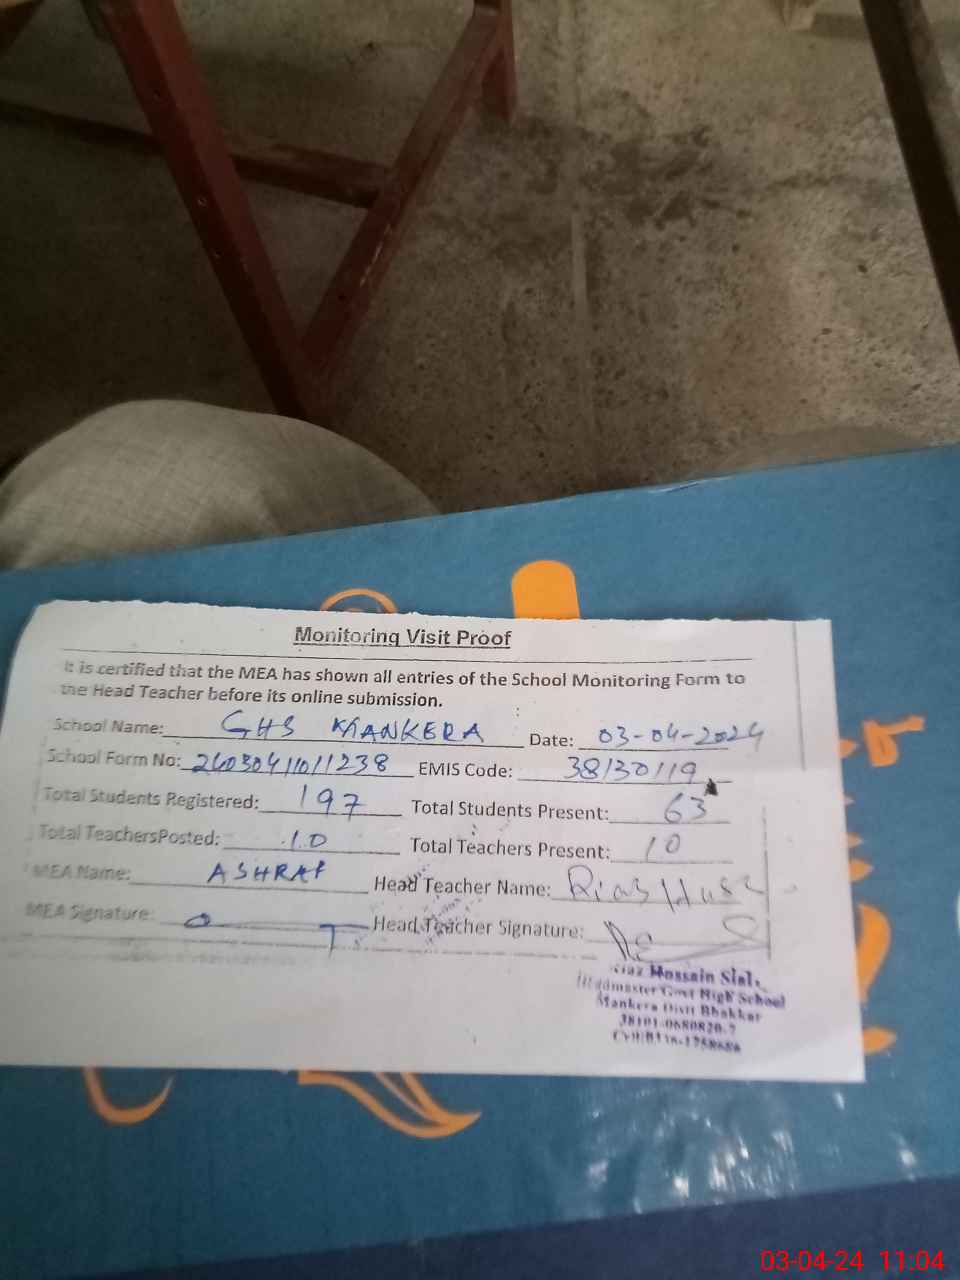 Monitoring Visit Proof
It is certified that the MEA has shown all entries of the School Monitoring Form to
the Head Teacher before its online submission.
School Name: GHS MANKERA Date: 03-04-2024
School Form No: 24030411011238 EMIS Code: 38130119
Total Students Registered: 197 Total Students Present: 63
Total TeachersPosted: 10 Total Teachers Present: 10
MEA Name: ASHRAF Head Teacher Name: Riaz
MEA Signature: Head Teacher Signature:
Riaz Hossain Sial
Headmaster Govt High School
Mankera Distt Bhakkar
38101-0680820-7
03-04-24 11:04